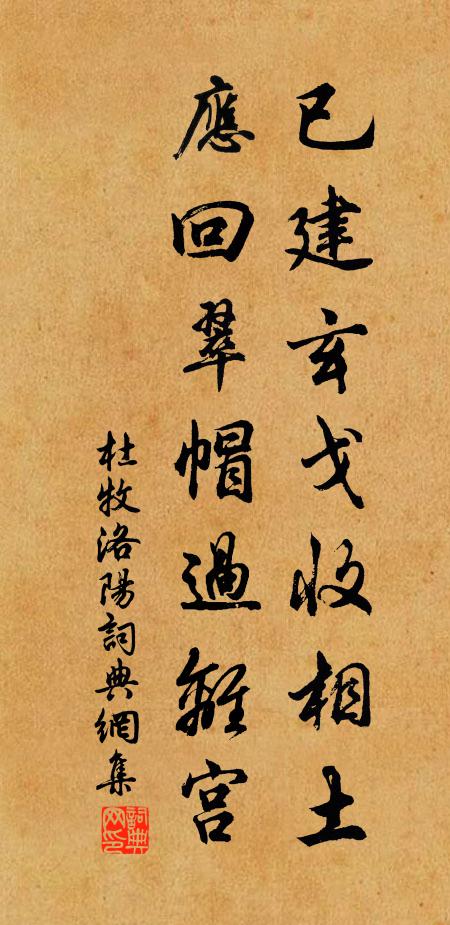 已建玄戈收相土
應回翠帽過離宮
杜牧洛陽詞典網集
詞典網印